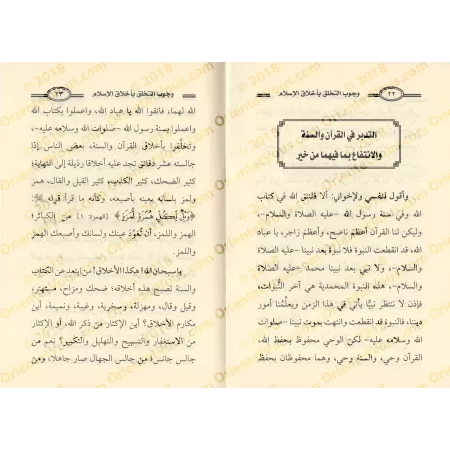 ٢٢ وجوب التخلق بأخلاق الإسلام
التدبر في القرآن والسنة
والانتفاع بما فيهما من خير
وأقول لنفسي ولإخواني: ألا فلنتق الله في كتاب
الله وفي سنة رسول الله -عليه الصلاة والسلام-،
وليكن لنا القرآن أعظم ناصح، وأعظم زاجر، يا عباد
الله، قد انقطعت النبوة فلا نبوة بعد نبينا محمد -عليه الصلاة
والسلام-، ولا نبي بعد نبينا محمد -عليه الصلاة
والسلام-، هذه النبوة المحمدية هي آخر النبوات،
فإذن لا ننتظر نبيًّا يأتي في هذا الزمن ويعلمنا أمور
ديننا، فالنبوة قد انقطعت وانتهت بموت نبينا -صلوات
الله وسلامه عليه- لكن الوحي محفوظ بحفظ الله،
فالقرآن وحي، والسنة وحي، وهما محفوظان بحفظ
وجوب التخلق بأخلاق الإسلام ٢٣
الله لهما، فاتقوا الله يا عباد الله، واعملوا بكتاب الله
واعملوا بسنة رسول الله -صلوات الله وسلامه عليه-،
وتخلقوا بأخلاق القرآن والسنة، بعض الناس إذا
جالسته عشر دقائق تجد عليه أخلاقا رذيلة إلى النهاية؛
كثير الضحك، كثير الكذب، كثير القيل والقال، همز
ولمز بلسانه يعيبه بأصبعه، أو ما قرأ قوله ﷺ:
﴿وَيْلٌ لِّكُلِّ هُمَزَةٍ لُّمَزَةٍ﴾ (الهمزة ١) من الكبائر!
الهمز واللمز، أن تُعَوِّد عينك ولسانك وأصبعك الهمز
واللمز.
يا سبحان الله! هكذا الأخلاق! من ابتعد عن الكتاب
والسنة تصبح هذه أخلاقه؛ ضحك ومزاح، مستهتر،
وقيل وقال، ومهزلة، وسخرية، وغيبة، ونميمة، أين
مكارم الأخلاق؟ أين الإكثار من ذكر الله، أو الإكثار
من الاستغفار والتسبيح والتهليل والتكبير؟ نعم من
جالس جانس! من جالس الجهال صار جاهلا، ومن